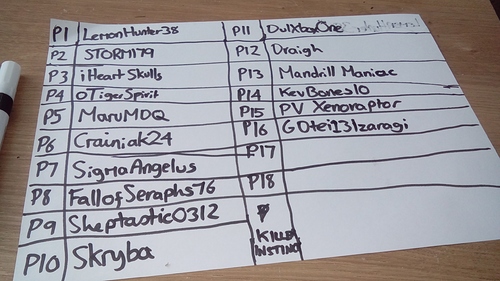 P1 LemonHunter38
P2 STORM179
P3 iHeart Skulls
P4 OTigerSpirit
P5 MaruMDQ
P6 Crainiak24
P7 SigmaAngelus
P8 FallofSeraphs76
P9 Sheptastic0312
P10 Skryba
P11 DulXboxOne
P12 Draigh
P13 Mandrill Maniac
P14 KevBones10
P15 PV Xenoraptor
P16 GOtei13Izaragi
P17
P18
KILLER
INSTINCT